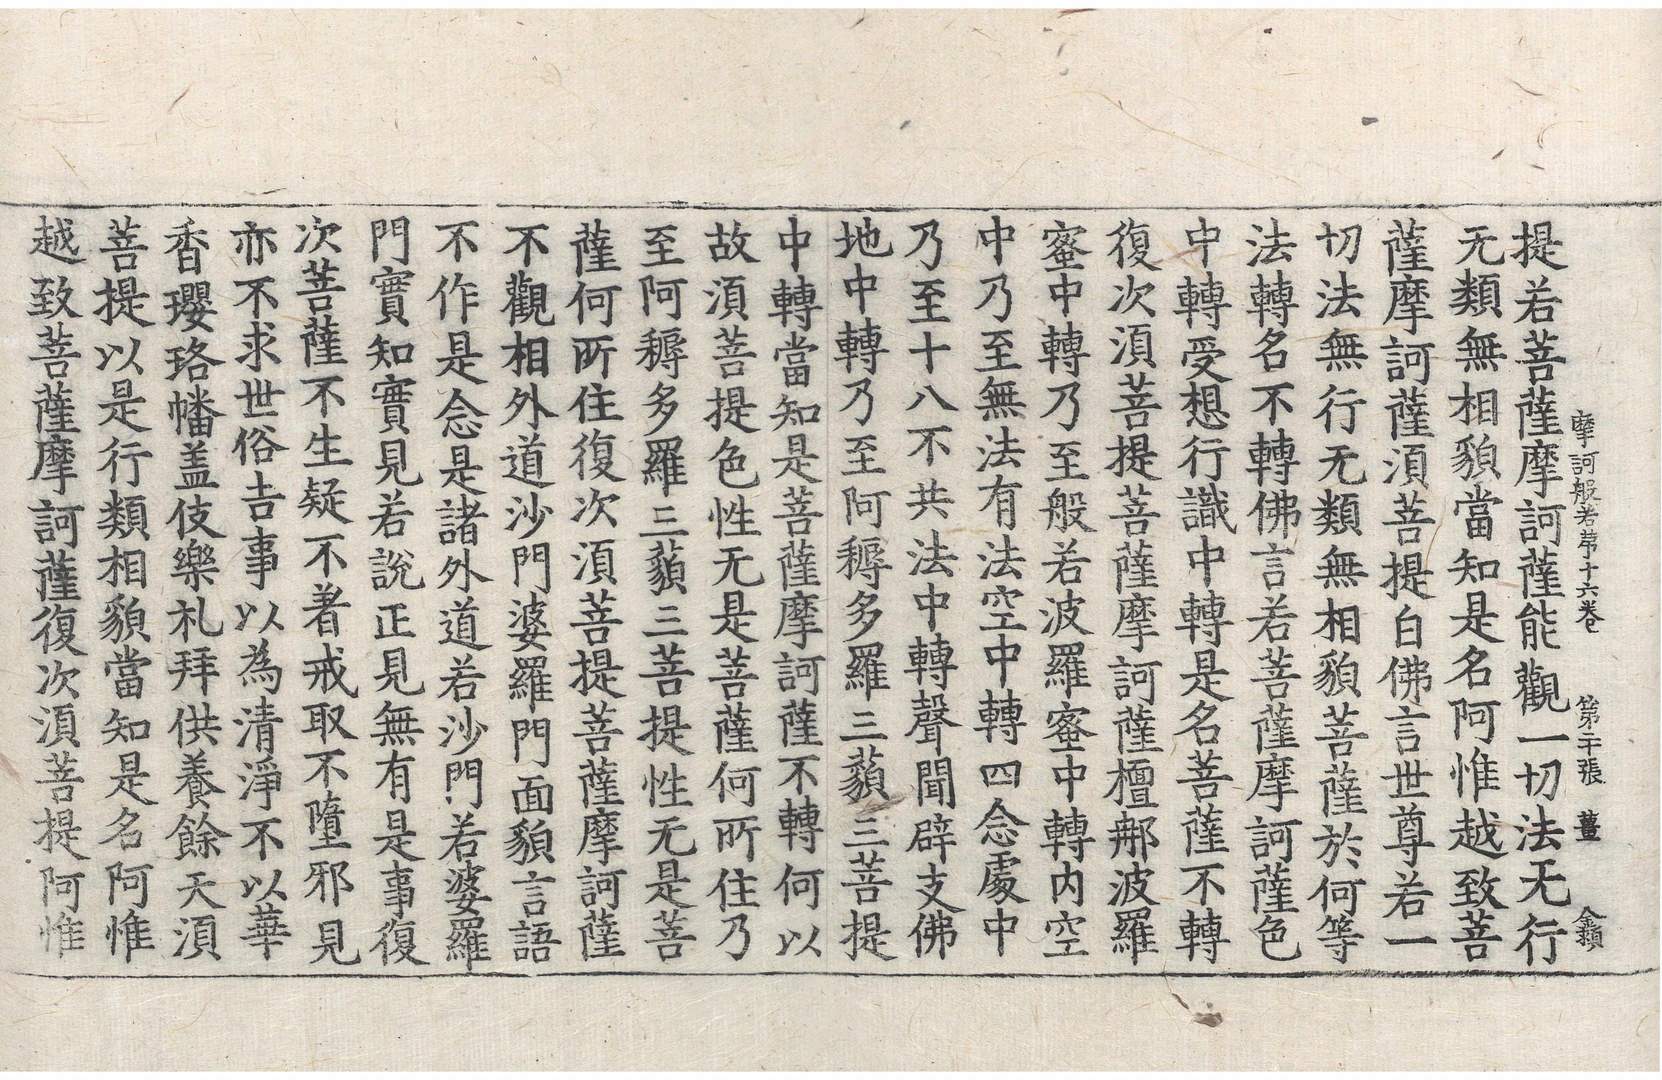 摩訶般若苐十六卷 第二十張 薑 金額
提若菩薩摩訶薩能觀一切法无行
无類無相貌當知是名阿惟越致菩
薩摩訶薩湏菩提白佛言世尊若一
切法無行无類無相貌菩薩於何等
法轉名不轉佛言若菩薩摩訶薩色
中轉受想行識中轉是名菩薩不轉
復次湏菩提菩薩摩訶薩檀𨚗波羅
蜜中轉乃至般若波羅蜜中轉内空
中乃至無法有法空中轉四念處中
乃至十八不共法中轉聲聞辟支佛
地中轉乃至阿耨多羅三藐三菩提
中轉當知是菩薩摩訶薩不轉何以
故湏菩提色性无是菩薩何所住乃
至阿耨多羅三藐三菩提性无是菩
薩何所住復次湏菩提菩薩摩訶薩
不觀相外道沙門婆羅門面貌言語
不作是念是諸外道若沙門若婆羅
門實知實見若說正見無有是事復
次菩薩不生疑不著戒取不墮邪見
亦不求世俗吉事以為清淨不以華
香瓔珞幡盖伎樂礼拜供養餘天湏
菩提以是行類相貌當知是名阿惟
越致菩薩摩訶薩復次湏菩提阿惟